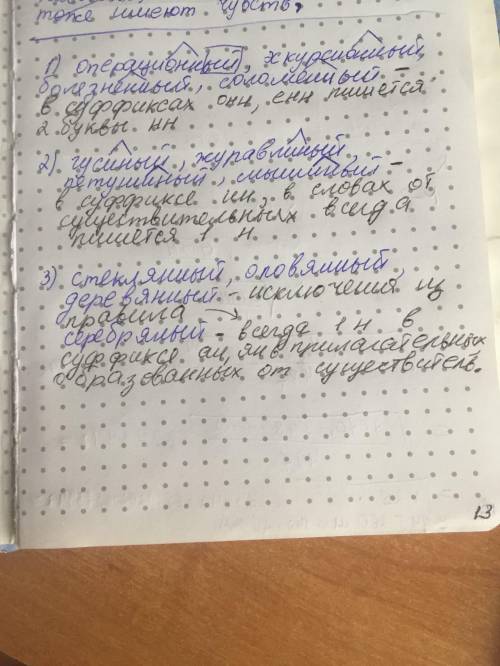 тоже имеют чувств.
1) операционный, экскурсионный,
болезненный, соломенный -
в суффиксах онн, енн пишется
2 буквы нн
2) гусиный, журавлиный,
петушиный, мышиный -
в суффиксе ин, в словах от
существительных всегда
пишется 1 н.
3) стеклянный, оловянный,
деревянный - исключения из
правила
серебряный - всегда 1 н в
суффиксе ан, ян в прилагательных
образованных от существитель.
13